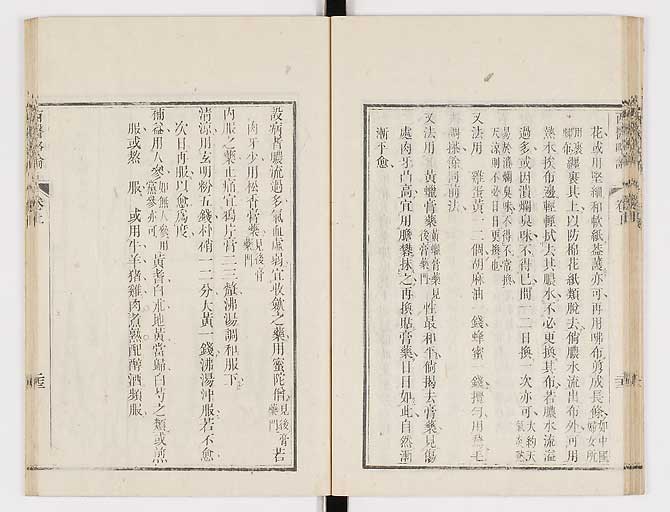 花或用堅綿和軟紙葢護亦可再用唎布剪成長條如中國婦女所
用裹脚布纒裹其上以防棉花紙類脫去倘膿水流出布外可用
熱水挨布邊輕輕拭去其膿水不必更換其布若膿水流溢
過多或因潰爛臭味不得已間一二日換一次亦可大約天氣炎熱
易於潰爛臭味不得不常換天涼則不必日日更換也
又法用 雞蛋黃一二個胡麻油一錢蜂蜜一錢攪勻用
調搽餘同前法
又法用 黃蠟膏藥黃蠟膏藥見後膏藥門性最和平倘揭去膏藥見傷
處肉牙凸高宜用膽礬抹之再換貼膏藥日日如此自然漸
漸平愈
設病者膿流過多氣血虛弱宜收斂之藥用蜜陀僧見後膏藥門若
肉牙少用松香膏藥見後膏藥門
內服之藥止痛宜鴉片膏二三釐沸湯調和服下
清涼用玄明粉五錢朴硝一二分大黃一錢沸湯沖服若不愈
次日再服以愈爲度
補益用人參如無人參用黨參亦可黃耆白朮地黃當歸白芍之類或煎
服或熬 服 或用牛羊豬雞肉煮熟配醇酒頻服
西醫略論
卷三